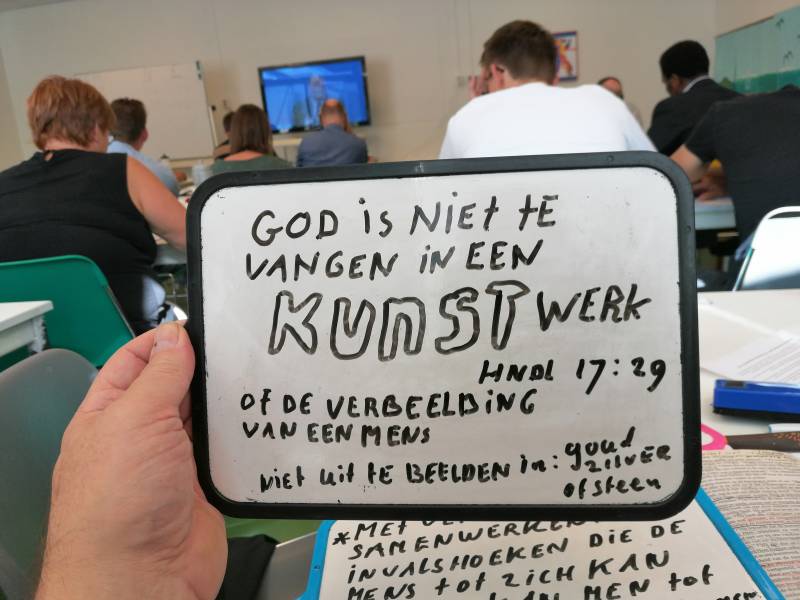 GOD is NiEt tE
VANGEN iN EEN
KUNSTWERK
HNDL 17:29
OF DE VERBEELDiNG
VAN EEN MENS
Niet uit te BEELDEN in: goud
ZILVER
of steen
*MET
SAMENWERKEN
iNVALSHOEKEN DIE DE
MENS tOt ZiCH KAN
MEN tot